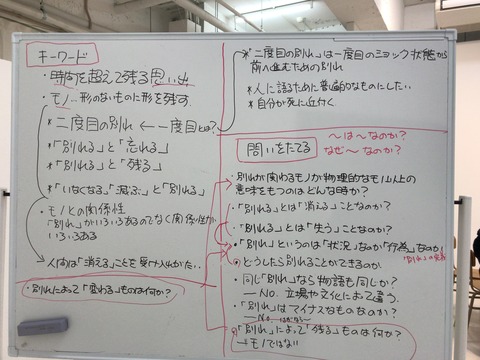 キーワード
・時間を超えて残る思い出
・モノ…形のないものに形を残す
*二度目の別れ ← 一度目とは?
*「別れる」と「忘れる」
*「別れる」と「残る」
*「いなくなる」「滅ぶ」と「別れる」
・モノとの関係性
「別れ」がいろいろあるのでなく関係性が
いろいろある
人間は「消える」ことを受け入れがたい
・別れによって「変わる」ものは何か?
*"二度目の別れ"は一度目のショック状態から
前へ進むための別れ
*人に語るために普遍的なものにしたい
*自分が死に近付く
問いをたてる
〜は〜なのか?
なぜ〜なのか?
・別れが関わるモノが物理的なモノ以上の
意味をもつのはどんな時か?
・「別れる」とは「消える」ことなのか?
・「別れる」とは「失う」ことなのか?
・「別れ」というのは「状況」なのか「行為」なのか
「別れ」の定義
どうしたら別れることができるのか
・同じ「別れ」なら物語も同じか?
— No. 立場や文化によって違う。
・「別れ」はマイナスなものなのか?
— No.
・「別れ」によって"残る"ものは何か?
→モノではない